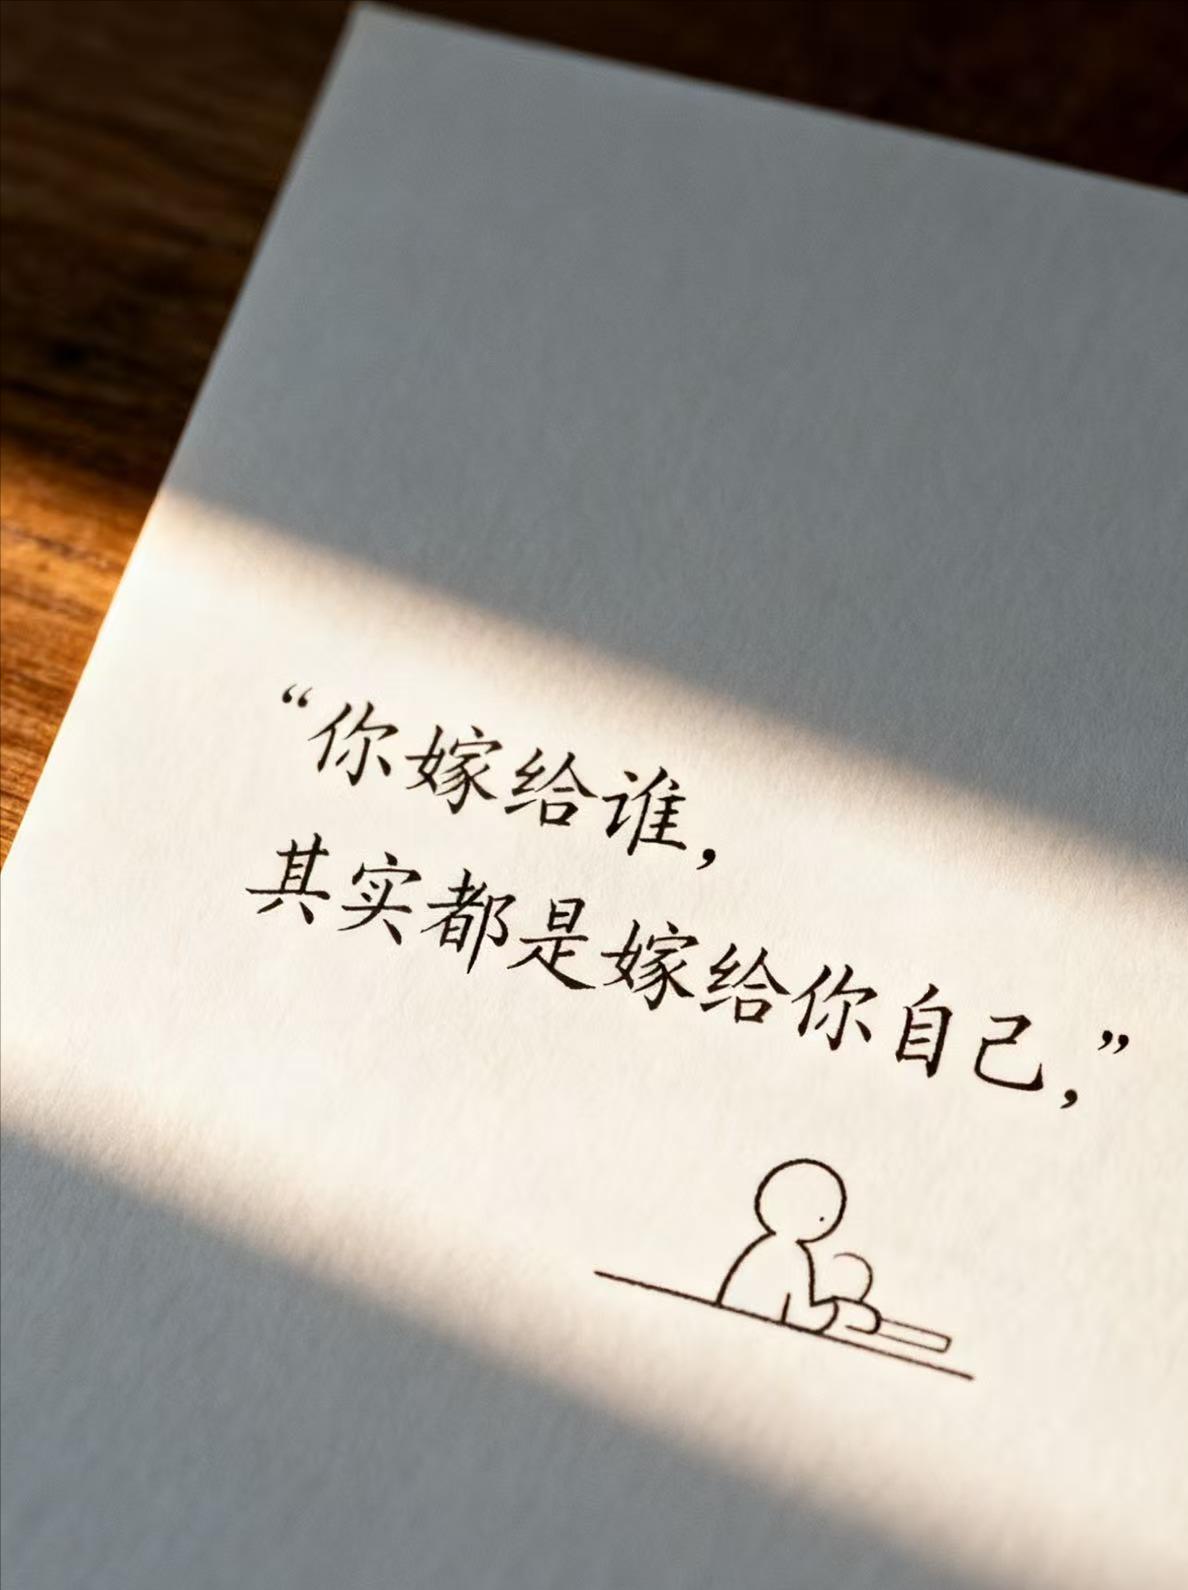 “你嫁给谁，
其实都是嫁给你自己，”